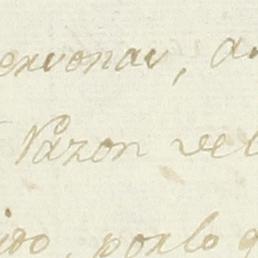 ervonar, a
Razon ve
ido, porlo q